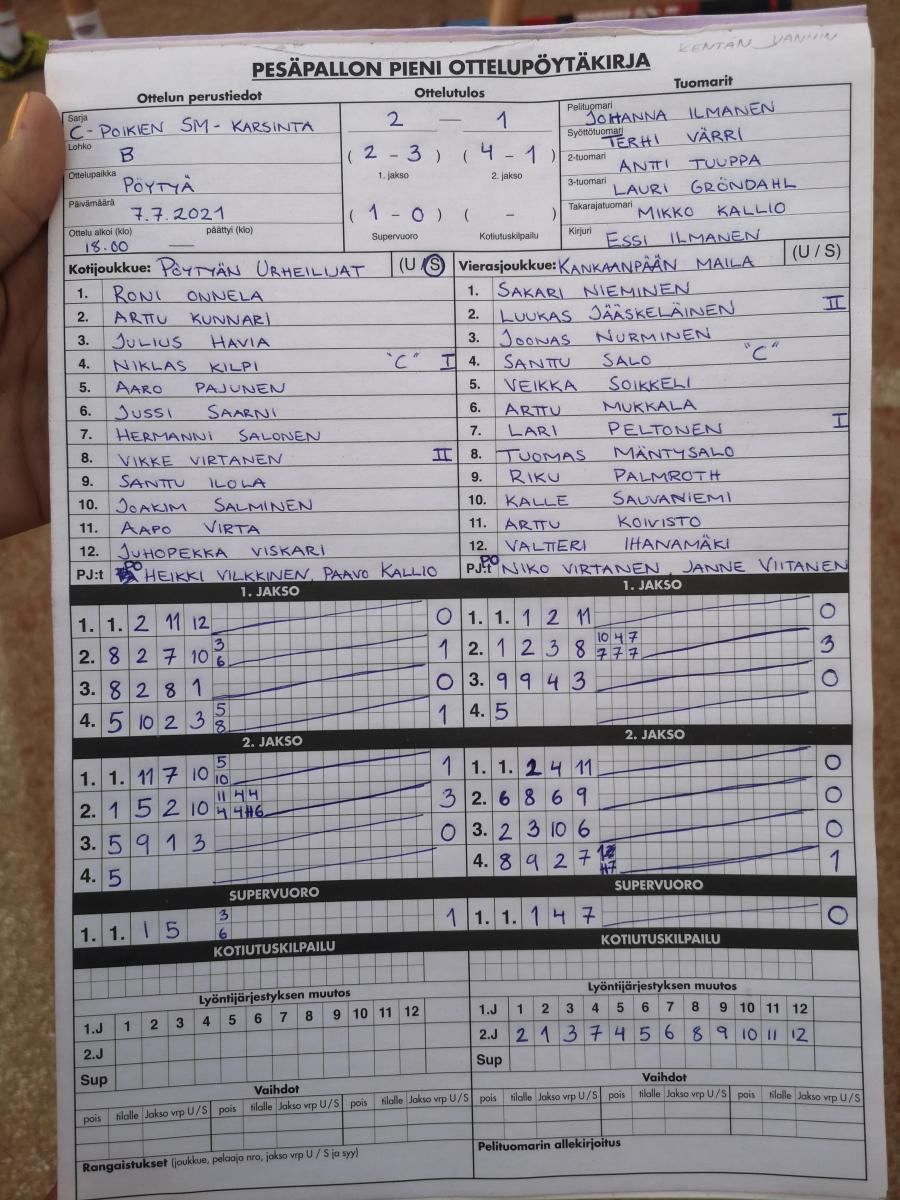 KENTÄN VANHIN
PESÄPALLON PIENI OTTELUPÖYTÄKIRJA
Ottelun perustiedot
Sarja C-POIKIEN SM-KARSINTA
Lohko B
Ottelupaikka PÖYTYÄ
Päivämäärä 7.7.2021
Ottelu alkoi (klo) päättyi (klo)
18.00 —
Ottelutulos
2 — 1
( 2 - 3 ) ( 4 - 1 )
1. jakso 2. jakso
( 1 - 0 ) ( - )
Supervuoro Kotiutuskilpailu
Tuomarit
Pelituomari JOHANNA ILMANEN
Syöttötuomari TERHI VÄRRI
2-tuomari ANTTI TUUPPA
3-tuomari LAURI GRÖNDAHL
Takarajatuomari MIKKO KALLIO
Kirjuri ESSI ILMANEN
Kotijoukkue: PÖYTYÄN URHEILIJAT (U / S)
1. RONI ONNELA
2. ARTTU KUNNARI
3. JULIUS HAVIA
4. NIKLAS KILPI "C" I
5. AARO PAJUNEN
6. JUSSI SAARNI
7. HERMANNI SALONEN
8. VIKKE VIRTANEN II
9. SANTTU ILOLA
10. JOAKIM SALMINEN
11. AAPO VIRTA
12. JUHOPEKKA VISKARI
PJ:t PO HEIKKI VILKKINEN, PAAVO KALLIO
Vierasjoukkue: KANKAANPÄÄN MAILA (U / S)
1. SAKARI NIEMINEN
2. LUUKAS JÄÄSKELÄINEN II
3. JOONAS NURMINEN
4. SANTTU SALO "C"
5. VEIKKA SOIKKELI
6. ARTTU MUKKALA
7. LARI PELTONEN I
8. TUOMAS MÄNTYSALO
9. RIKU PALMROTH
10. KALLE SAUVANIEMI
11. ARTTU KOIVISTO
12. VALTTERI IHANAMÄKI
PJ:t PO NIKO VIRTANEN, JANNE VIITANEN
1. JAKSO
1. 1. 2 11 12 0
2. 8 2 7 10 3 1
6
3. 8 2 8 1 0
4. 5 10 2 3 5 1
8
1. JAKSO
1. 1. 1 2 11 0
2. 1 2 3 8 10 4 7 3
7 7 7
3. 9 9 4 3 0
4. 5
2. JAKSO
1. 1. 11 7 10 5 1
10
2. 1 5 2 10 11 4 4 3
4 4 6
3. 5 9 1 3 0
4. 5
2. JAKSO
1. 1. 2 4 11 0
2. 6 8 6 9 0
3. 2 3 10 6 0
4. 8 9 2 7 1
SUPERVUORO
1. 1. 1 5 3 1
6
SUPERVUORO
1. 1. 1 4 7 0
KOTIUTUSKILPAILU
Lyöntijärjestyksen muutos
1.J 1 2 3 4 5 6 7 8 9 10 11 12
2.J
Sup
Vaihdot
pois tilalle Jakso vrp U / S pois tilalle Jakso vrp U / S pois tilalle Jakso vrp U / S
Rangaistukset (joukkue, pelaaja nro, jakso vrp U / S ja syy)
KOTIUTUSKILPAILU
Lyöntijärjestyksen muutos
1.J 1 2 3 4 5 6 7 8 9 10 11 12
2.J 2 1 3 7 4 5 6 8 9 10 11 12
Sup
Vaihdot
pois tilalle Jakso vrp U / S pois tilalle Jakso vrp U / S pois tilalle Jakso vrp U / S
Pelituomarin allekirjoitus